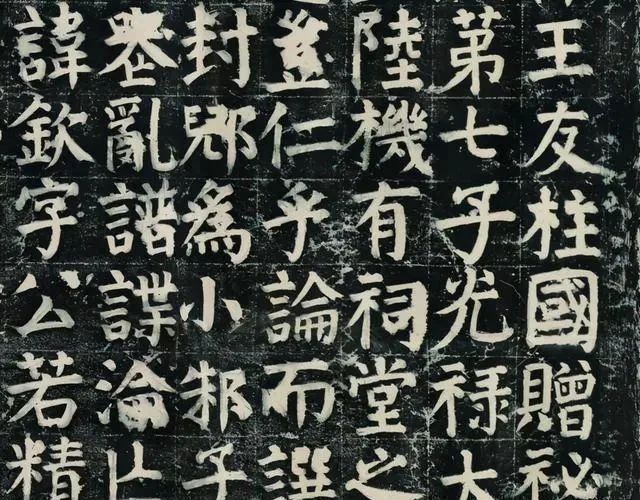 王友柱國贈祕
苐七子光祿大
陸機有祠堂之
豈仁乎論而譔
封郳爲小邾子
亂譜諜淪亡
諱欽字公若精